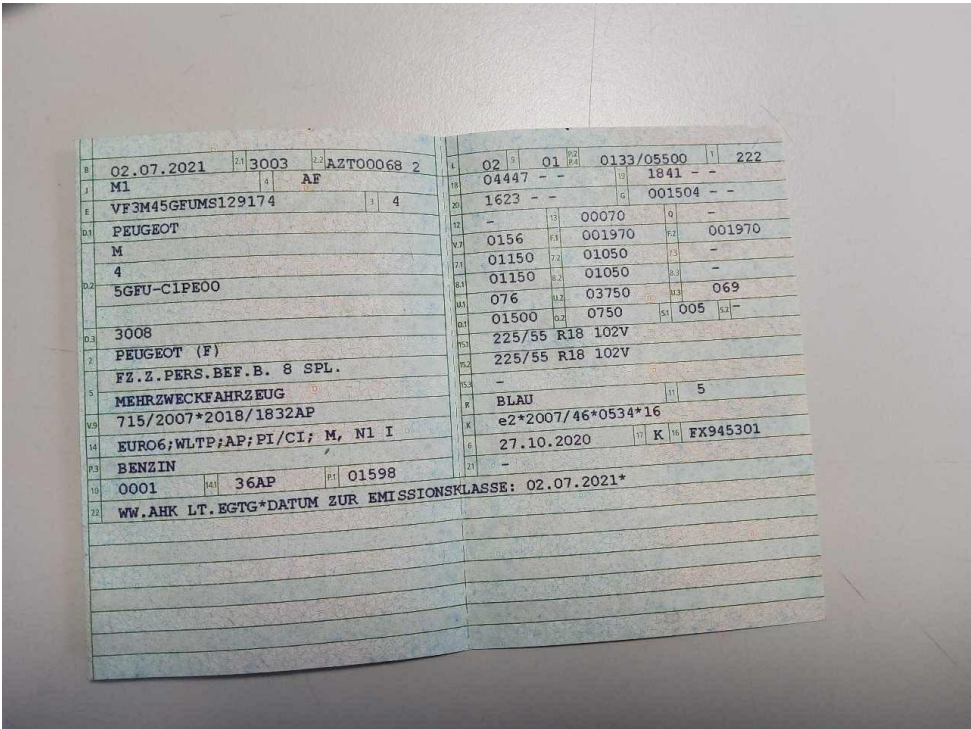 B 02.07.2021 2.1 3003 2.2 AZT00068 2
J M1 4 AF
E VF3M45GFUMS129174 3 4
D.1 PEUGEOT
M
4
D.2 5GFU-C1PE00
D.3 3008
2 PEUGEOT (F)
FZ.Z.PERS.BEF.B. 8 SPL.
5 MEHRZWECKFAHRZEUG
V.9 715/2007*2018/1832AP
14 EURO6;WLTP;AP;PI/CI; M, N1 I
P.3 BENZIN
10 0001 14.1 36AP P.1 01598
22 WW.AHK LT.EGTG*DATUM ZUR EMISSIONSKLASSE: 02.07.2021*
L 02 9 01 P.2 P.4 0133/05500 T 222
18 04447 - - 19 1841 - -
20 1623 - - G 001504 - -
12 - 13 00070 Q -
V.7 0156 F.1 001970 F.2 001970
7.1 01150 7.2 01050 7.3 -
8.1 01150 8.2 01050 8.3 -
U.1 076 U.2 03750 U.3 069
O.1 01500 O.2 0750 S.1 005 S.2 -
15.1 225/55 R18 102V
15.2 225/55 R18 102V
15.3 -
R BLAU 11 5
K e2*2007/46*0534*16
6 27.10.2020 17 K 16 FX945301
21 -